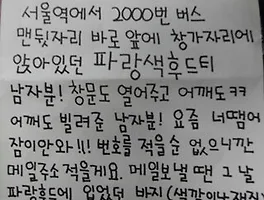 서울역에서 2000번 버스
맨뒷자리 바로 앞에 창가자리에
앉아있던 파랑색후드티
남자분! 창문도 열어주고 어깨도ㅋㅋ
어깨도 빌려준 남자분! 요즘 너땜에
잠이안와!!! 번호를 적을순 없으니깐
메일주소적을게요. 메일보낼 때 그 날
파랑후드에 입었던 바지(색깔이나 재질)